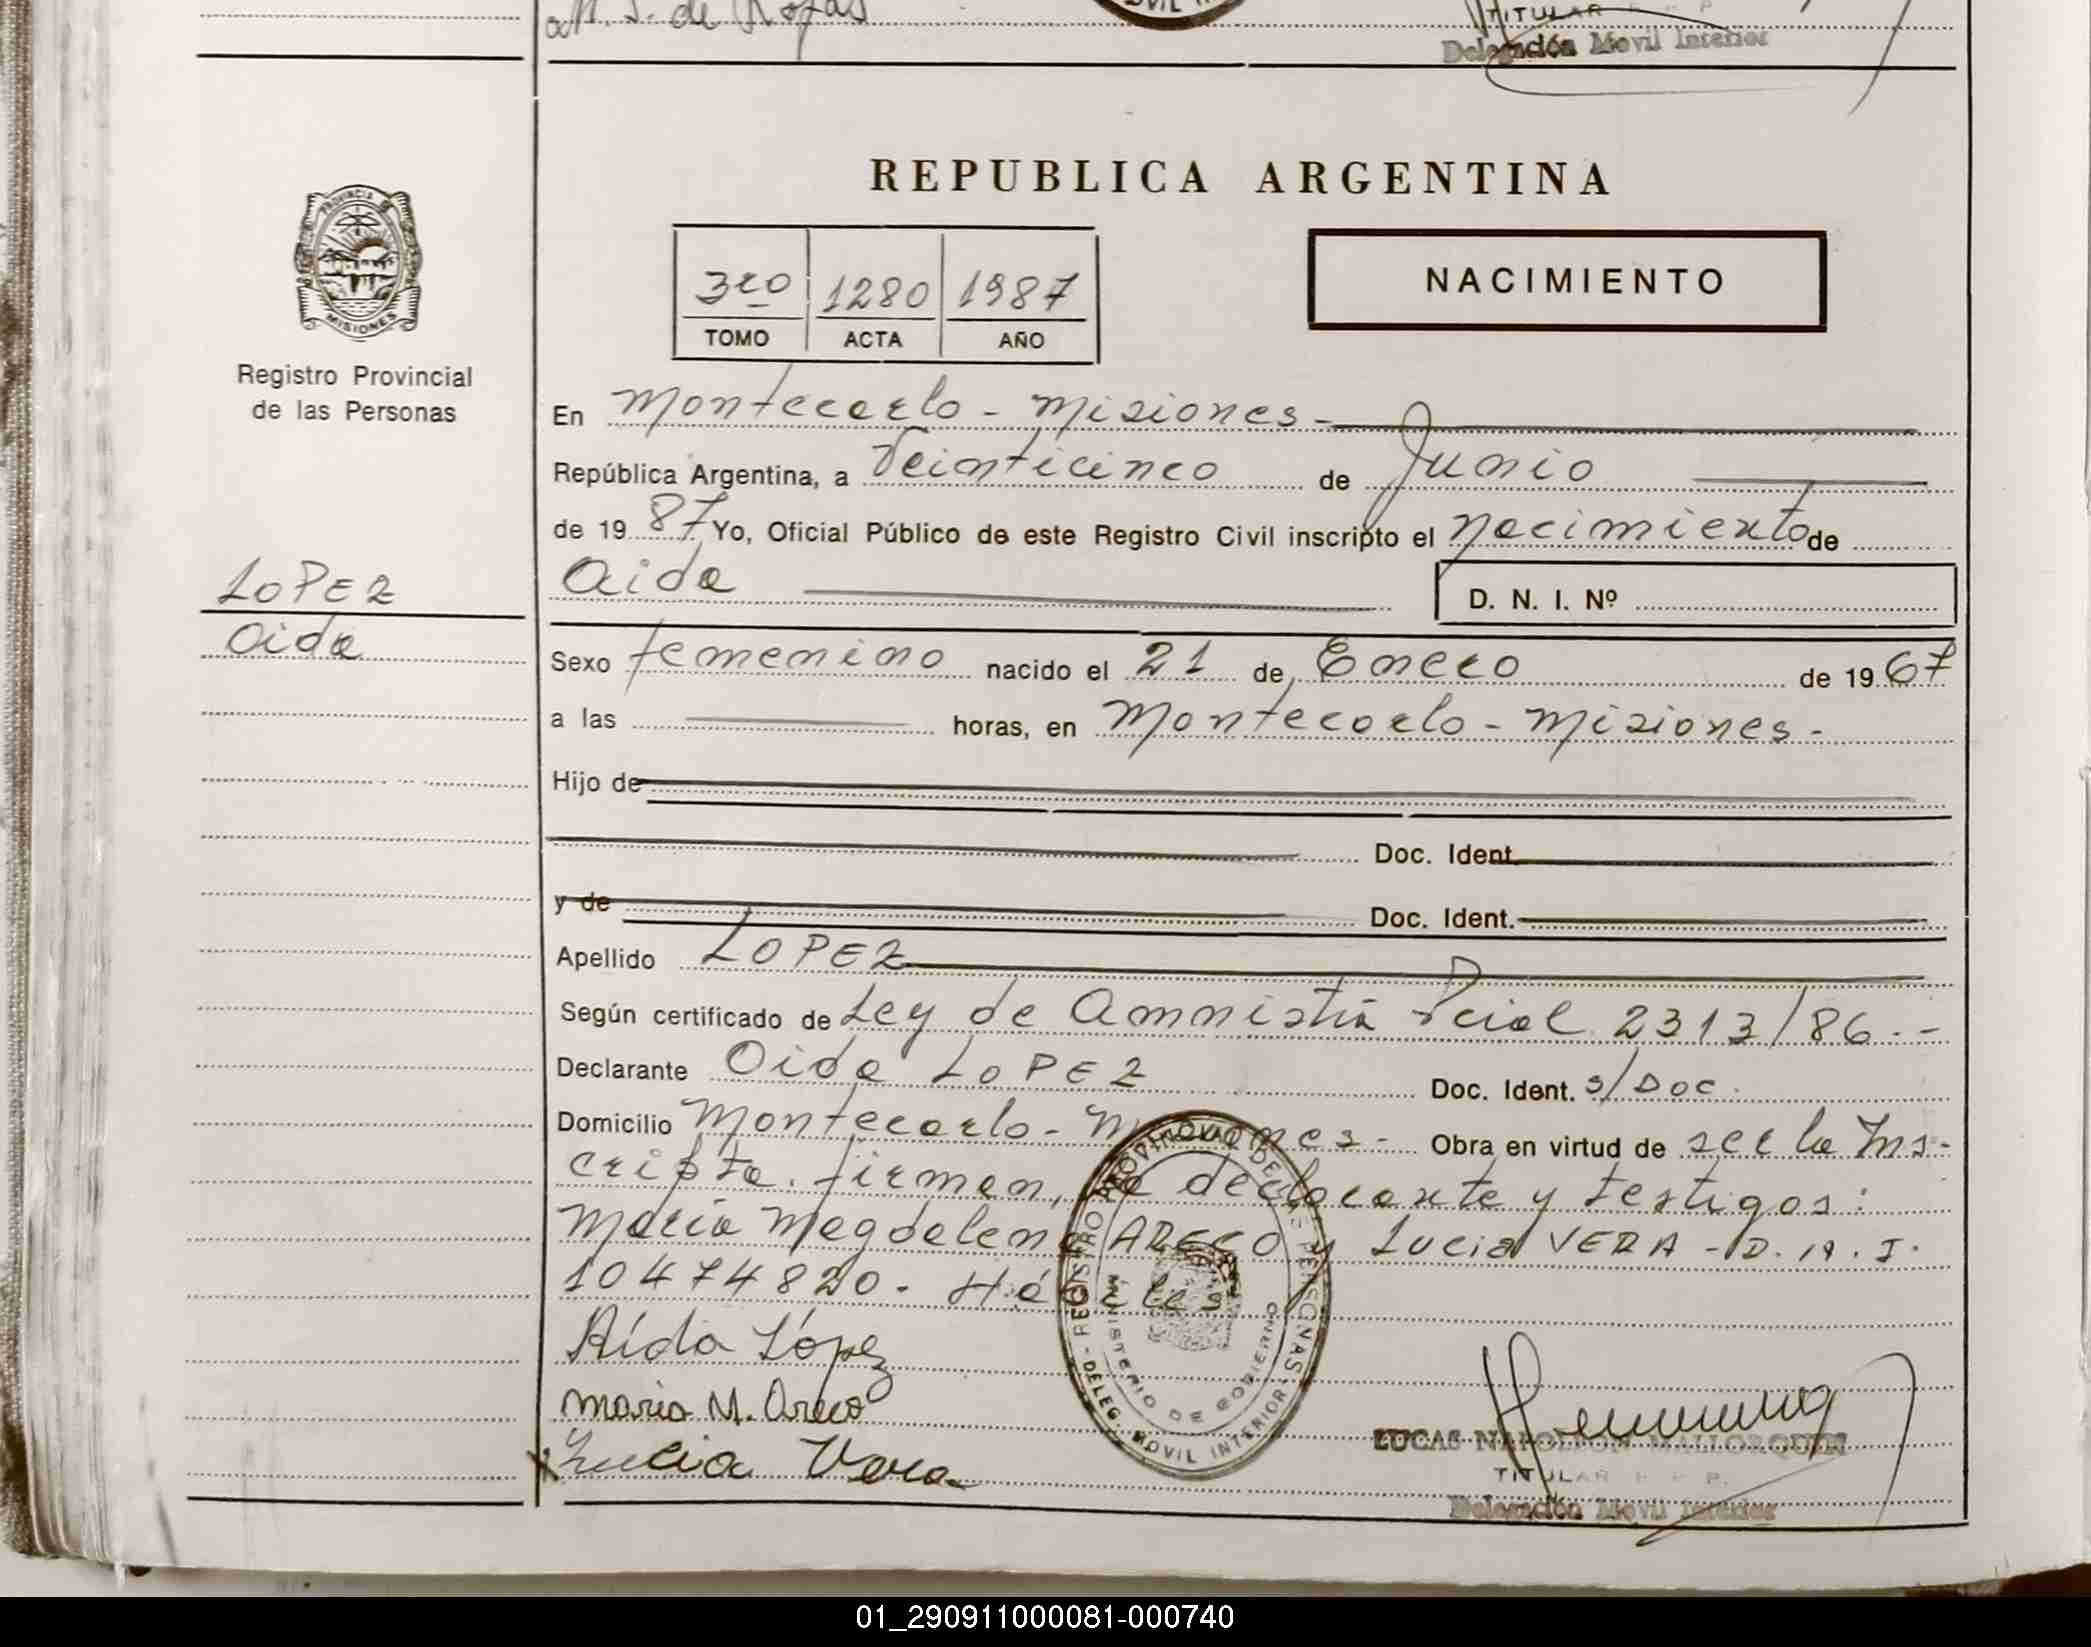 a M. S. de Rojas
TITULAR R. P. P.
Delegación Movil Interior
REPUBLICA ARGENTINA
3ro 1280 1987
TOMO ACTA AÑO
NACIMIENTO
PROVINCIA DE
MISIONES
Registro Provincial
de las Personas
En Montecarlo - Misiones -
República Argentina, a Veinticinco de Junio
de 1987 Yo, Oficial Público de este Registro Civil inscripto el Nacimiento de
Aida D. N. I. Nº
LOPEZ
Aida
Sexo femenino nacido el 21 de Enero de 1967
a las horas, en Montecarlo - Misiones -
Hijo de
Doc. Ident.
y de Doc. Ident.
Apellido LOPEZ
Según certificado de Ley de Amnistía Pcial 2313/86.-
Declarante Aida LOPEZ Doc. Ident. s/Doc.
Domicilio Montecarlo - Misiones - Obra en virtud de ser la Ins-
cripta. firman, la declarante y testigos:
María Magdalena ARECO y Lucia VERA - D.N.I.
10474820. Hábiles
Aída López
Maria M. Areco
Lucia Vera
REGISTRO PROVINCIAL DE LAS PERSONAS - DELEG. MOVIL INTERIOR -
MINISTERIO DE GOBIERNO
LUCAS NAPOLEON MALLORQUIN
TITULAR R. P. P.
Delegación Movil Interior
01_290911000081-000740